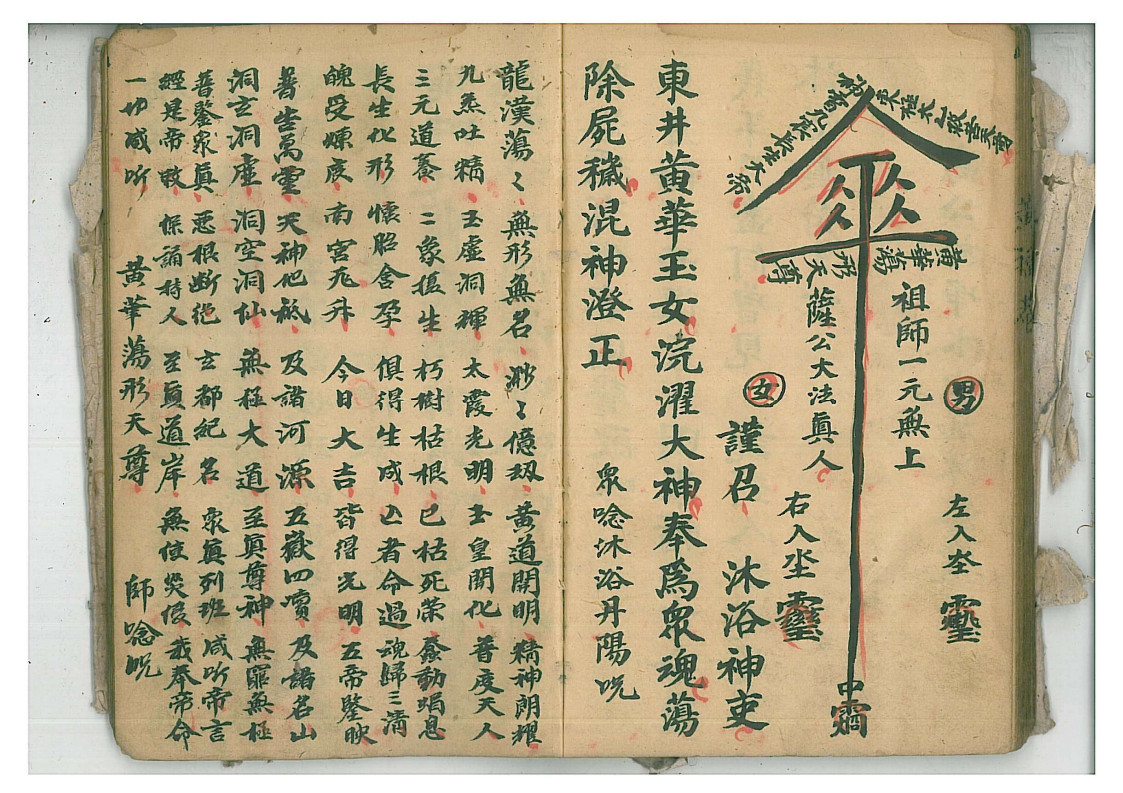 男
左入
祖師一元無上
黃華蕩
形天尊
薩公大法眞人
右入坐
女
謹召 沐浴神吏
東井黃華玉女浣濯大神奉爲眾魂蕩
除屍穢混神澄正
眾唸沐浴丹陽呪
龍漢蕩〻 無形無名 渺〻億劫 黃道開明 精神朗耀
九炁吐精 玉虛洞輝 太霞光明 玉皇開化 普度天人
三元道養 二象復生 朽樹枯根 已枯死榮 蠢動蜎息
長生化形 懷胎含孕 俱得生成 亡者命過 魂歸三清
魄受煉度 南宮飛升 今日大吉 皆得光明 五帝鑒映
普告萬靈 天神地祗 及諸河源 五嶽四瀆 及諸名山
洞玄洞虛 洞空洞仙 無極大道 至眞尊神 無窮無極
普鑒眾眞 惡根斷絕 玄都紀名 眾眞列班 咸听帝言
經是帝敕 保誦持人 至眞道岸 無使災侵 我奉帝命
一切咸听 黃華蕩形天尊 師唸呪